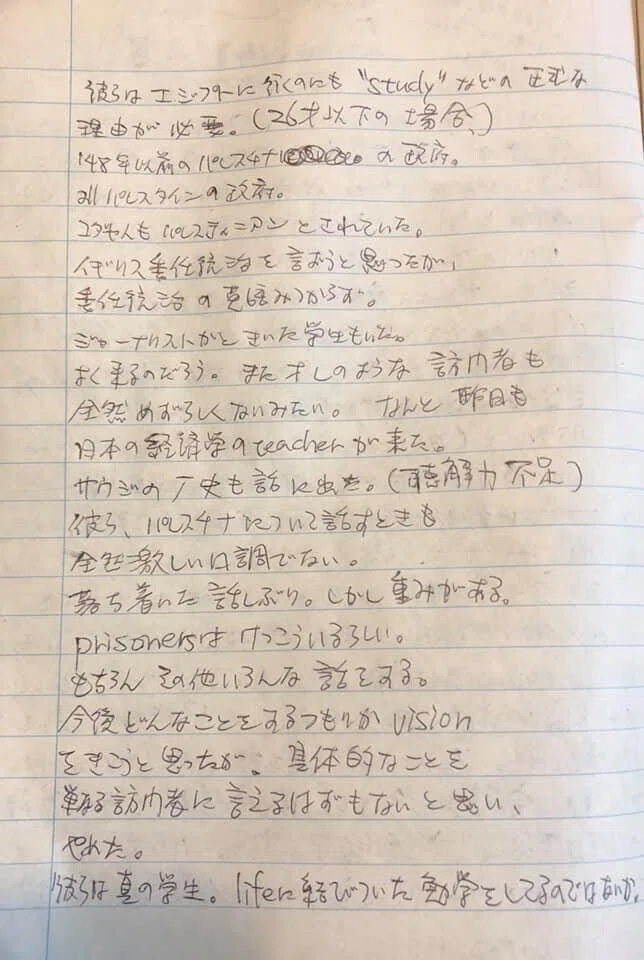 彼らはエジプトに行くのにも "study" などの正当な
理由が必要。(26才以下の場合、)
'48年以前のパレスチナ の政府。
allパレスタインの政府。
ユダヤ人もパレスティニアンとされていた。
イギリス委任統治を言おうと思ったが、
委任統治の英語みつからず。
ジャーナリストかときいた学生もいた。
よく来るのだろう。またオレのような訪問者も
全然めずらしくないみたい。なんと昨日も
日本の経済学のteacherが来た。
サウジの 史も話に出た。(聴解力不足)
彼ら、パレスチナについて話すときも
全然激しい口調でない。
落ち着いた話しぶり。しかし重みがある。
prisonersはけっこういるらしい。
もちろんその他いろんな話をする。
今後どんなことをするつもりか vision
をきこうと思ったが、具体的なことを
単なる訪問者に言えるはずもないと思い、
やめた。
彼らは真の学生。lifeに結びついた勉学をしてるのではないか。